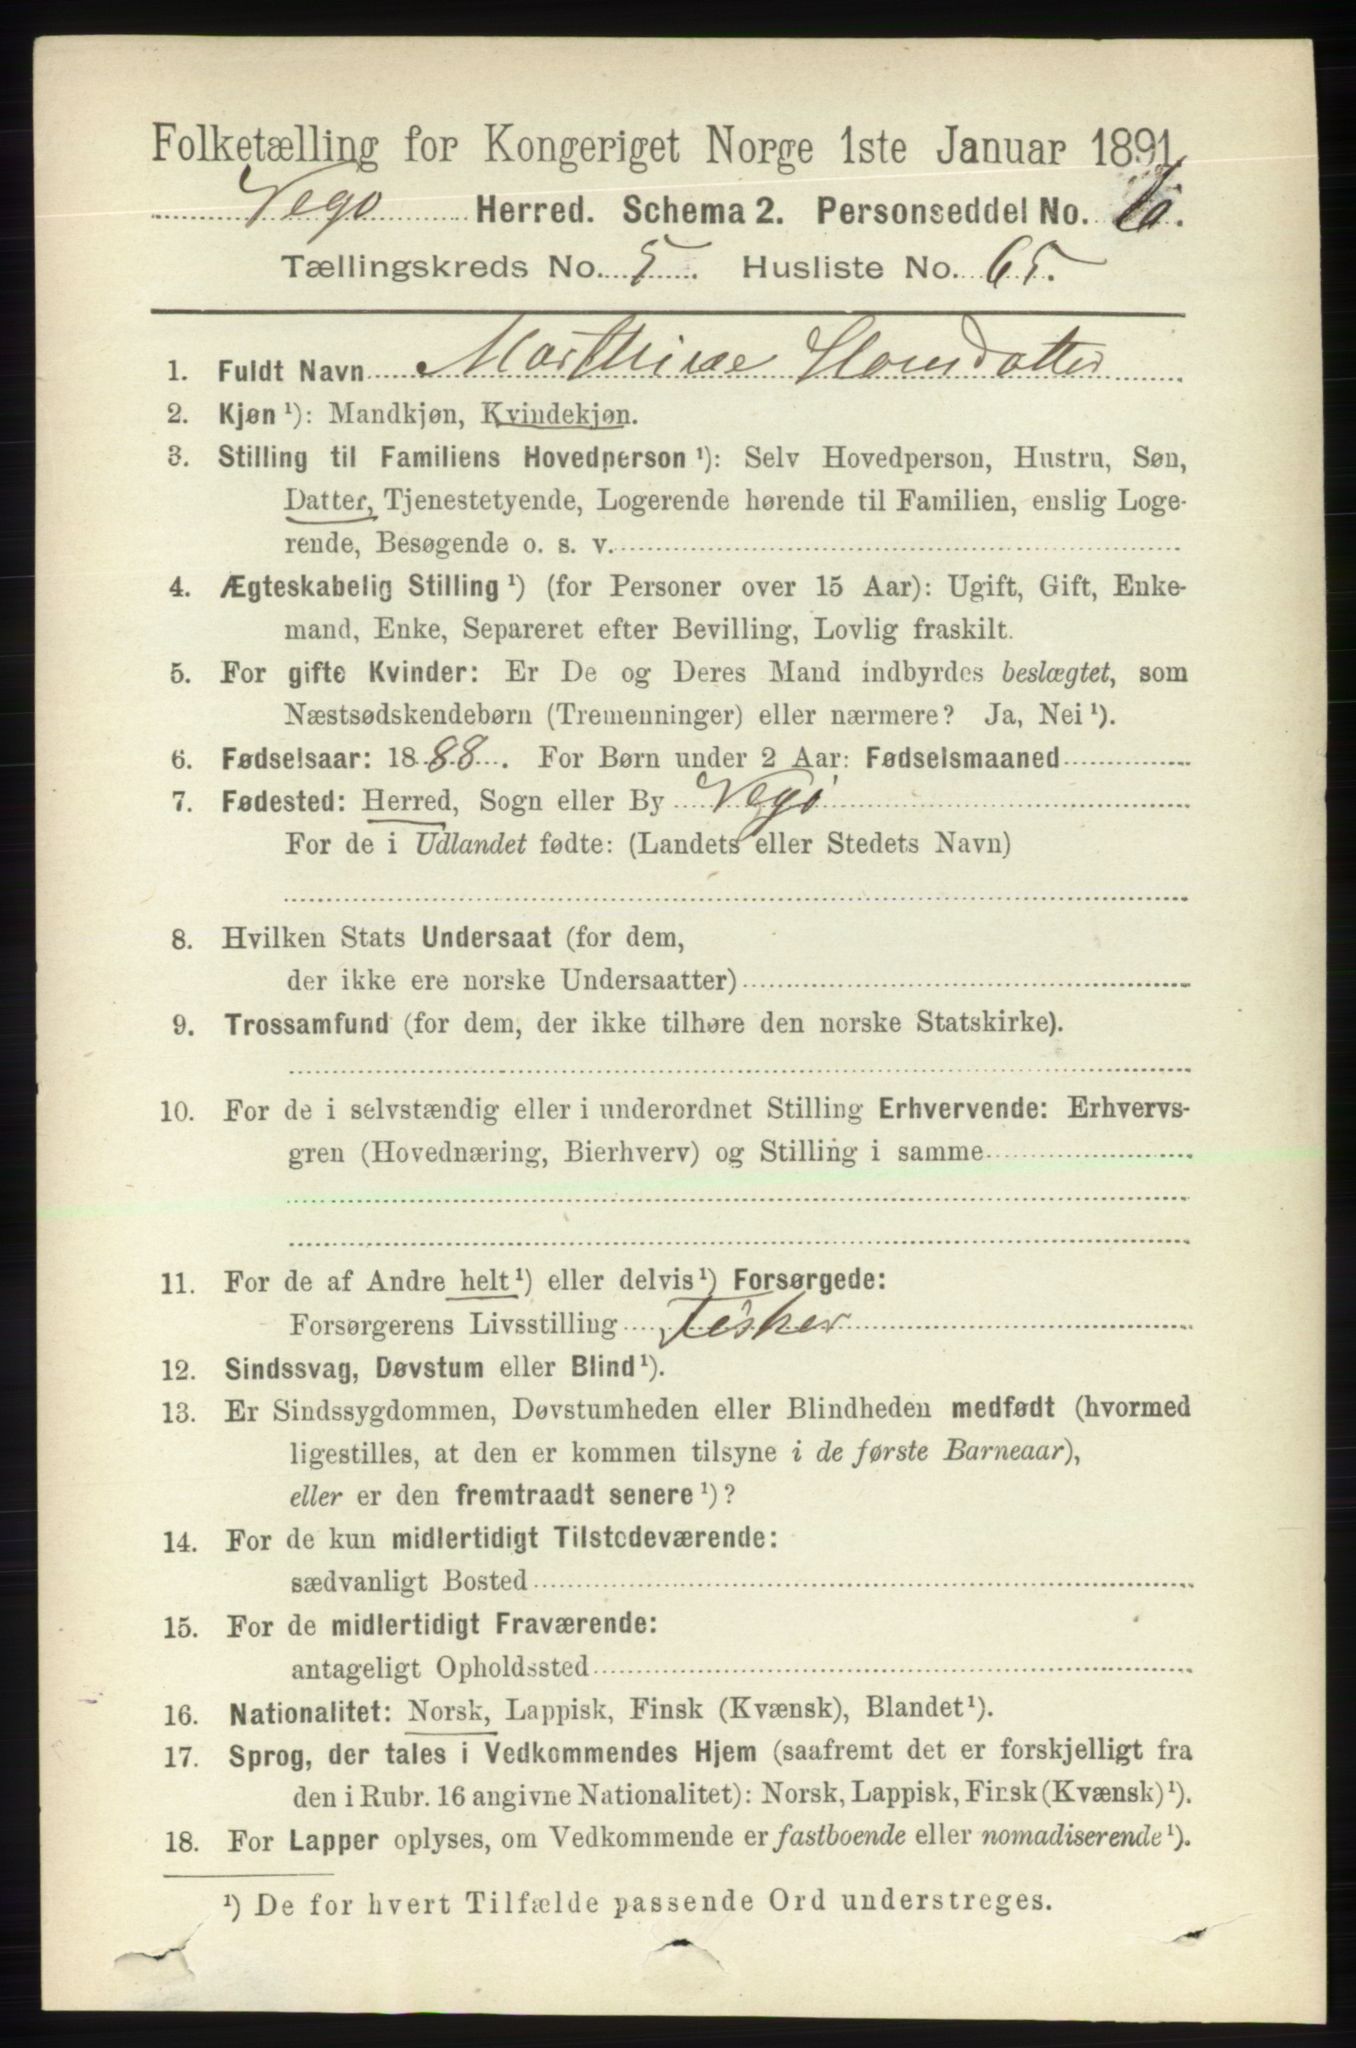 Folketælling for Kongeriget Norge 1ste Januar 1891.
Vegø Herred. Schema 2. Personseddel No. 6.
Tællingskreds No. 5. Husliste No. 65.
1. Fuldt Navn Marthine Hansdatter
2. Kjøn ¹): Mandkjøn, Kvindekjøn.
3. Stilling til Familiens Hovedperson ¹): Selv Hovedperson, Hustru, Søn,
Datter, Tjenestetyende, Logerende hørende til Familien, enslig Loge-
rende, Besøgende o. s. v.
4. Ægteskabelig Stilling ¹) (for Personer over 15 Aar): Ugift, Gift, Enke-
mand, Enke, Separeret efter Bevilling, Lovlig fraskilt.
5. For gifte Kvinder: Er De og Deres Mand indbyrdes beslægtet, som
Næstsødskendebørn (Tremenninger) eller nærmere? Ja, Nei ¹).
6. Fødselsaar: 1888. For Børn under 2 Aar: Fødselsmaaned
7. Fødested: Herred, Sogn eller By Vegø
For de i Udlandet fødte: (Landets eller Stedets Navn)
8. Hvilken Stats Undersaat (for dem,
der ikke ere norske Undersaatter)
9. Trossamfund (for dem, der ikke tilhøre den norske Statskirke).
10. For de i selvstændig eller i underordnet Stilling Erhvervende: Erhvervs-
gren (Hovednæring, Bierhverv) og Stilling i samme
11. For de af Andre helt ¹) eller delvis ¹) Forsørgede:
Forsørgerens Livsstilling Fisker
12. Sindssvag, Døvstum eller Blind ¹).
13. Er Sindssygdommen, Døvstumheden eller Blindheden medfødt (hvormed
ligestilles, at den er kommen tilsyne i de første Barneaar),
eller er den fremtraadt senere ¹)?
14. For de kun midlertidigt Tilstedeværende:
sædvanligt Bosted
15. For de midlertidigt Fraværende:
antageligt Opholdssted
16. Nationalitet: Norsk, Lappisk, Finsk (Kvænsk), Blandet ¹).
17. Sprog, der tales i Vedkommendes Hjem (saafremt det er forskjelligt fra
den i Rubr. 16 angivne Nationalitet): Norsk, Lappisk, Finsk (Kvænsk) ¹).
18. For Lapper oplyses, om Vedkommende er fastboende eller nomadiserende ¹).
¹) De for hvert Tilfælde passende Ord understreges.